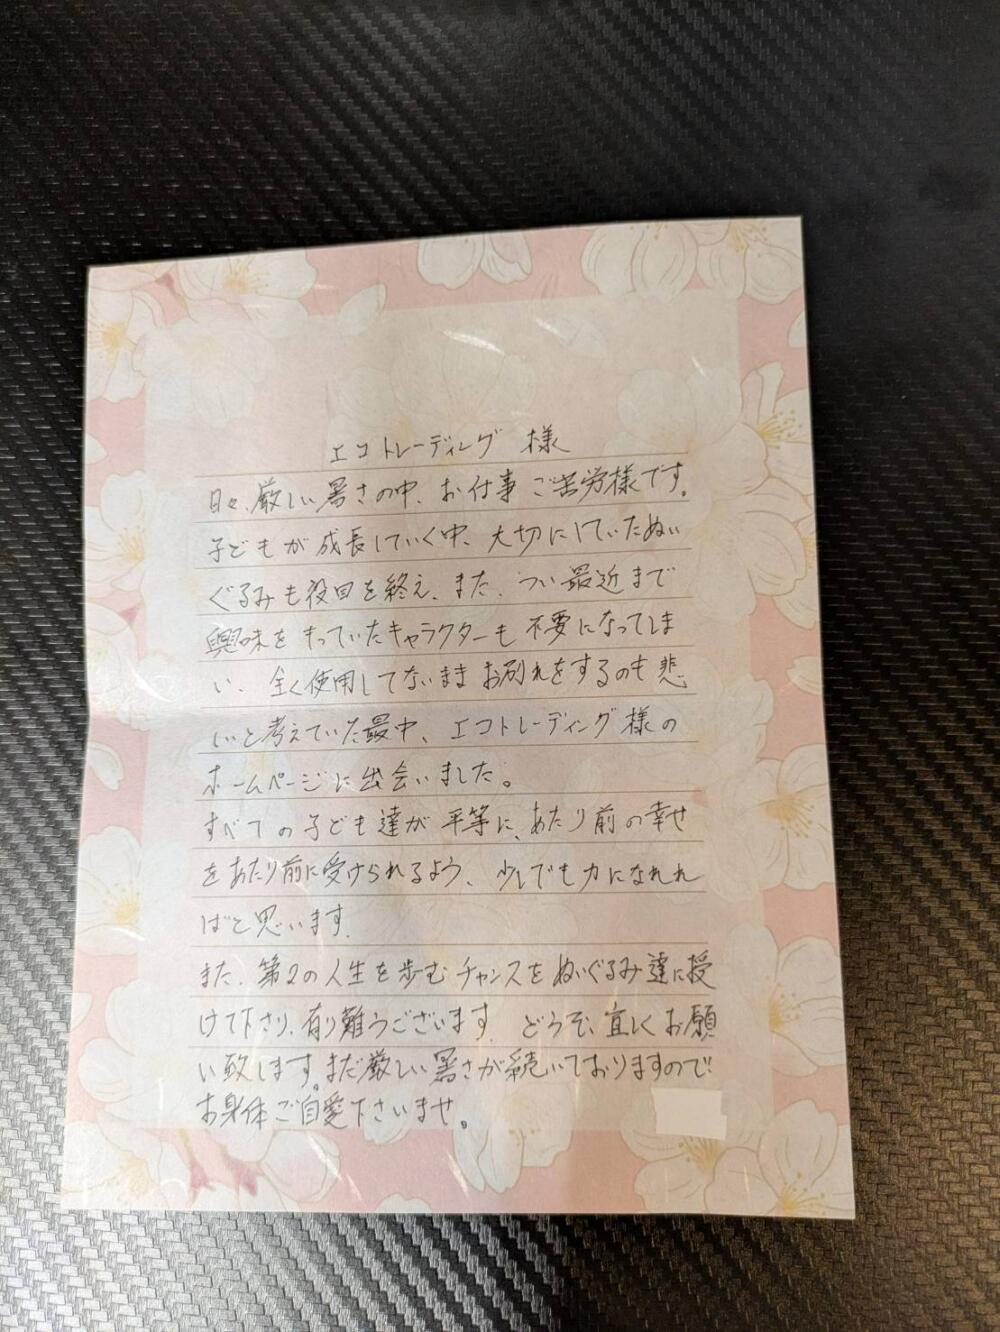 エコトレーディング 様
日々、厳しい暑さの中、お仕事 ご苦労様です。
子どもが成長していく中、大切にしていたぬい
ぐるみも役目を終え、また、つい最近まで
興味をもっていたキャラクターも不要になってしま
い、全く使用してないままお別れをするのも悲
しいと考えていた最中、エコトレーディング様の
ホームページに出会いました。
すべての子ども達が平等に、あたり前の幸せ
をあたり前に受けられるよう、少しでも力になれれ
ばと思います.
また、第2の人生を歩むチャンスをぬいぐるみ達に授
けて下さり、有り難うございます. どうぞ、宜しくお願
い致します。まだ厳しい暑さが続いておりますので
お身体ご自愛下さいませ。